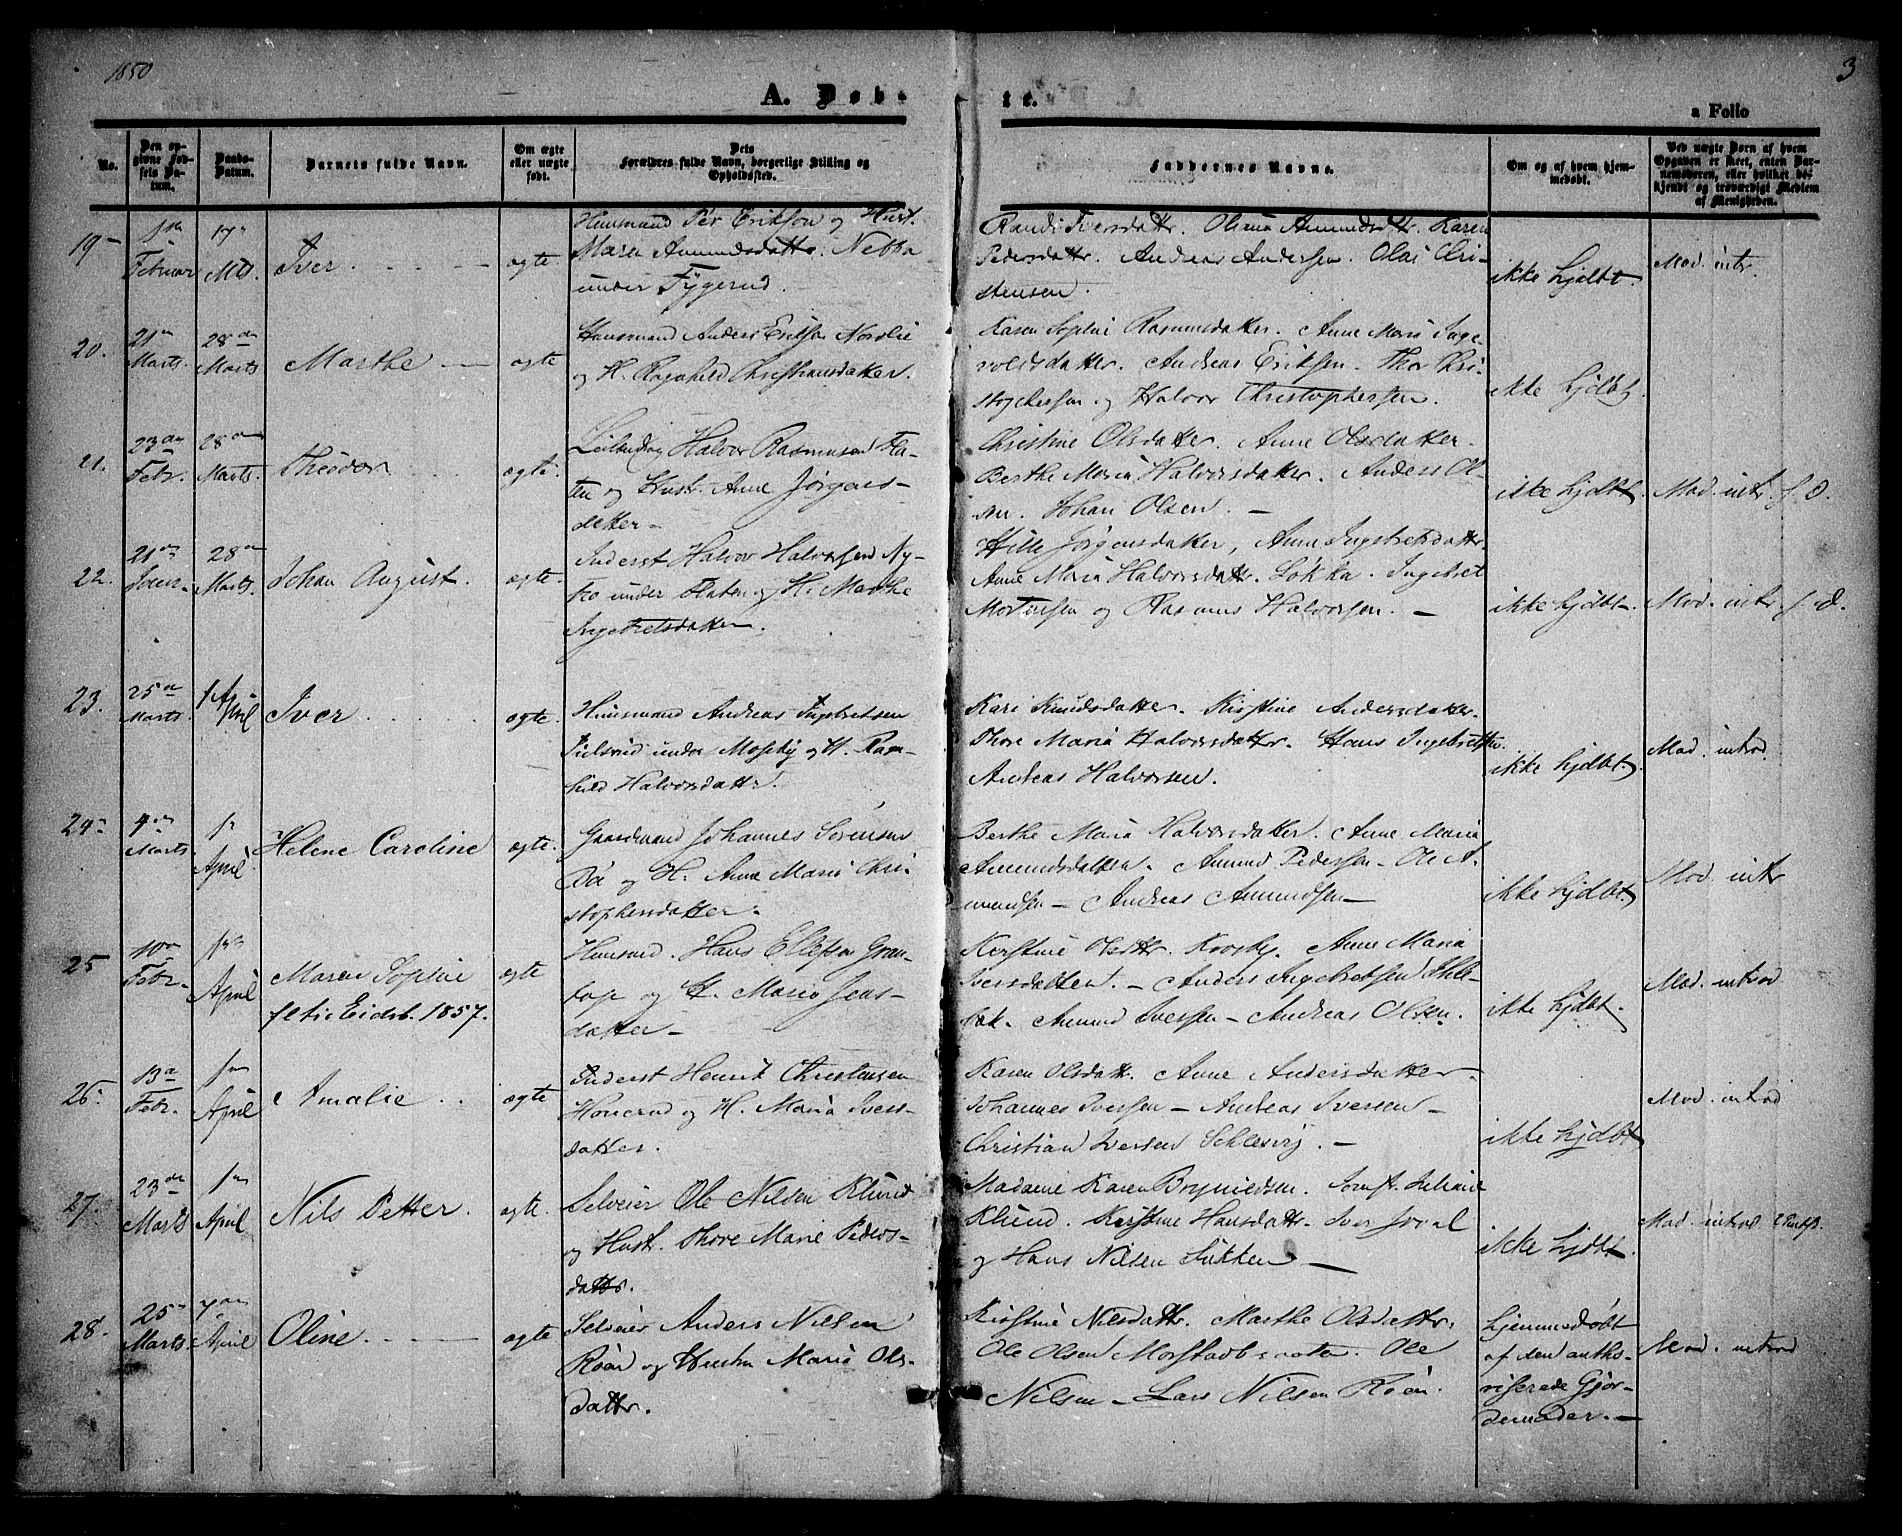 1850
3
A. Døb-
te.
a Folio
No.
Den op-
givne Fød-
sels Da-
tum.
Daabs-
Datum.
Barnets fulde Navn.
Om ægte
eller uægte
født.
Dets
Forældres fulde Navn, borgerlige Stilling og
Opholdssted.
Faddernes Navne.
Om og af hvem hjem-
medøbt.
Ved uægte Barn af hvem
Opgaven er skeet, enten Bar-
nemoderen, eller hvilket be-
kjendt og troværdigt Medlem
af Menigheden.
19
Februar
17
Mts.
Iver
ægte
Huusmand Per Eriksen og Hust.
Maren Amundsdattr.
under
Randi Iversdattr. Olena Amundsdttr. Karen
Pedersdattr. Andreas Andersen. Olai Chri-
stensen.
ikke hjdbt.
Mod. intr.
20.
21
Marts.
28de
Marts
Marthe
ægte
Huusmand Anders Eriksen Nordlie
og H. Ragnhild Christiansdatter.
Karen Sophie Rasmusdatter. Anne Marie Inge-
voldsdatter. Andreas Eriksen. Thor Chri-
stophersen og Halvor Christophersen.
ikke hjdbt.
21.
23
Febr.
28
Marts.
Theodor
ægte.
Halvor Rasmussen Fla-
ten og Hustr. Anne Jörgens-
datter
Christine Olsdatter. Anne Olsdatter
Berthe Maria Halvorsdatter. Anders Ol-
sen. Johan Olsen.
ikke hjdbt.
Mod. intr. f. d.
22.
21
28
Marts.
Johan August.
ægte.
Inderst Halvor Halvorsen Ny-
bro under Flaten og H. Marthe
Ingebretsdatter.
Hille Jörgensdatter, Anne Ingebretsdattr.
Anne Maria Halvorsdattr. Løkka. Ingebret
Mortensen og Rasmus Halvorsen.
ikke hjdbt.
Mod. intr. f. d.
23.
25
Marts
1 April
Iver
ægte.
Huusmand Andreas Ingebretsen
under Moseby og H. Ragn-
hild Halvorsdattr.
Kari Knudsdatter. Kirstine Andersdatter.
Thore Maria Halvorsdattr. Hans Ingebretsen.
Andreas Halvorsen.
ikke hjdbt.
Mod. introd.
24
4
Marts
1
April
Helene Caroline
ægte.
Gaardmand Johannes Sörensen
Döe og H. Anne Maria Chri-
stophersdatter.
Berthe Maria Halvorsdatter. Anne Maria
Amundsdatter. Amund Pedersen Ole A-
mundsen Andreas Amundsen
ikke hjdbt.
Mod. intr
25
10
Febr.
1
April
Maren Sophie
Eidsb. 1857.
ægte
Huusmd. Hans Ellefsen Gran-
og H. Maria Jens-
datter
Kirstine Olsdttr. Krosby. Anne Maria
Iversdatter. Anders Ingebretsen
bæk. Amund Iversen Andreas Olsen.
ikke hjdbt.
Mod. introd
26.
13
Febr.
1
April
Amalie
ægte
Inderst Henrik Christensen
og H. Maria Ivers-
datter.
Karen Olsdattr. Anne Andersdatter.
Johannes Iversen Andreas Iversen
Christian Iversen Schlesvig.
ikke hjdbt
Mod. introd
27.
23de
Marts
1
April
Nils Petter.
ægte.
Selveier Ole Nilsen Klund
og Hust. Thore Marie Peders-
dattr.
Madame Karen Brynildsen. Jomf. Juliane
Klund. Kirstine Hansdattr. Iver
og Hans Nilsen
ikke hjdbt.
Mod. introd
28.
25
Marts.
7
April
Oline
ægte
Selveier Anders Nilsen
Röar og Hustru Maria Ols-
dattr.
Kirstine Nilsdattr. Marthe Olsdattr.
Ole Olsen Morstad Ole
Nilsen Lars Nilsen Röen.
hjemmedøbt
af den autho-
riserede Gjor-
demoder.
Mod. introd